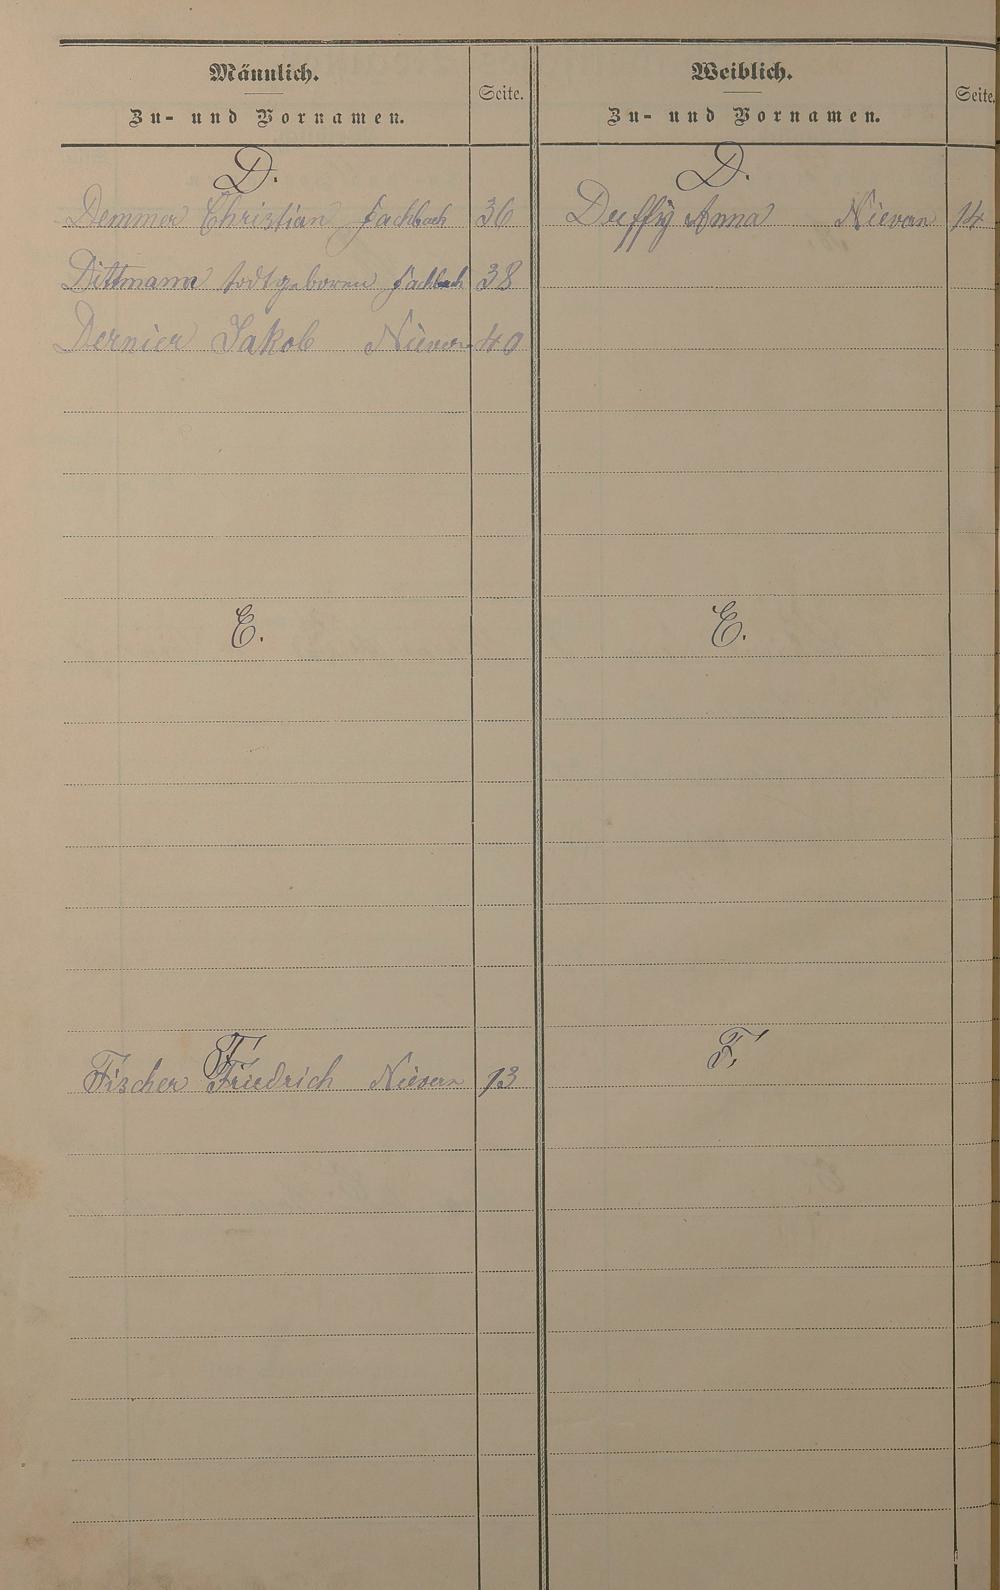 Männlich.
Zu- und Vornamen.
Seite.
Weiblich.
Zu- und Vornamen.
Seite.
D.
Demmer Christian Fachbach 36
Dittmann todtgeboren Fachbach 38
Dernier Jakob Nievern 40
D.
Duffÿ Anna Nievern 14
E.
E.
F.
Fischer Friedrich Nievern 13
F.